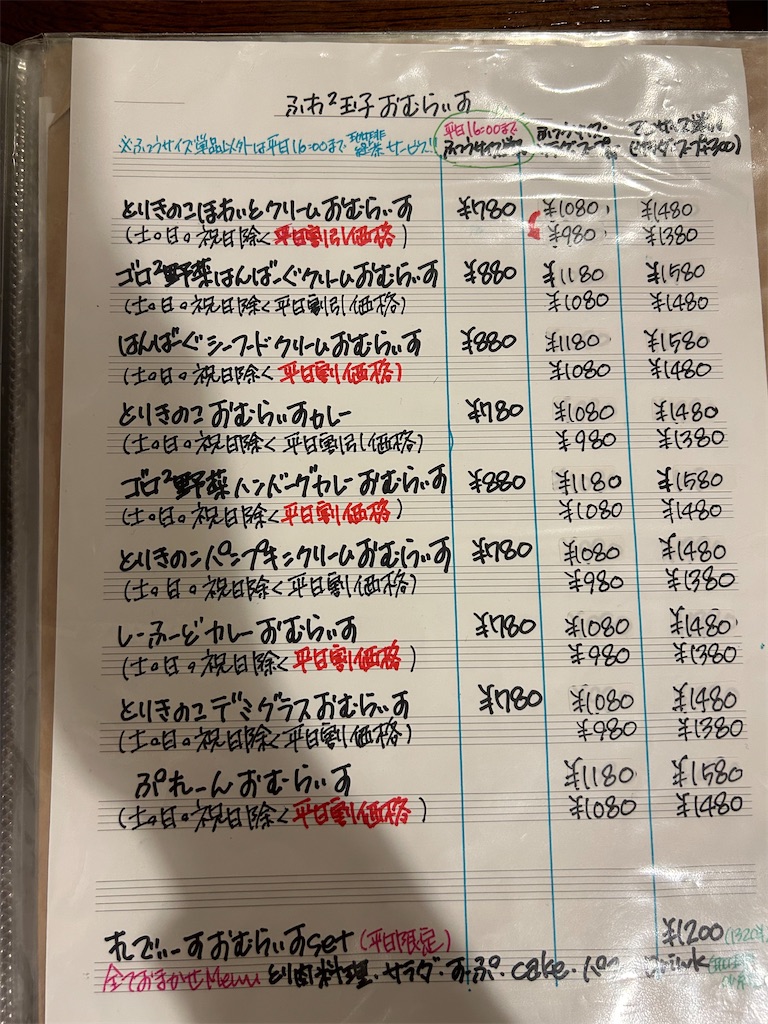 ふわ²玉子おむらいす
※ふつうサイズ単品以外は平日16:00まで 緑茶サービス!!
平日16:00まで
ふつうサイズ単品
とりきのこほわいとクリームおむらいす ¥780 ¥1080 ¥1480
(土。日。祝日除く平日割引価格) ¥980 ¥1380
ゴロ²野菜はんばーぐクリームおむらいす ¥880 ¥1180 ¥1580
(土。日。祝日除く平日割引価格) ¥1080 ¥1480
はんばーぐシーフードクリームおむらいす ¥880 ¥1180 ¥1580
(土。日。祝日除く平日割価格) ¥1080 ¥1480
とりきのこおむらいすカレー ¥780 ¥1080 ¥1480
(土。日。祝日除く平日割引価格) ¥980 ¥1380
ゴロ²野菜ハンバーグカレーおむらいす ¥880 ¥1180 ¥1580
(土。日。祝日除く平日割価格) ¥1080 ¥1480
とりきのこパンプキンクリームおむらいす ¥780 ¥1080 ¥1480
(土。日。祝日除く平日割価格) ¥980 ¥1380
しーふーどカレーおむらいす ¥780 ¥1080 ¥1480
(土。日。祝日除く平日割価格) ¥980 ¥1380
とりきのこデミグラスおむらいす ¥780 ¥1080 ¥1480
(土。日。祝日除く平日割価格) ¥980 ¥1380
ぷれーんおむらいす ¥1180 ¥1580
(土。日。祝日除く平日割価格) ¥1080 ¥1480
れでぃーすおむらいすset (平日限定) ¥1200
全ておまかせMenu とり肉料理・サラダ・すーぷ・cake・パン Drink